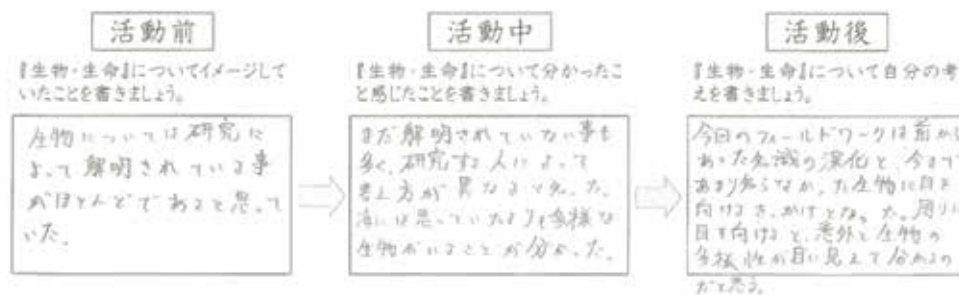 活動前
『生物・生命』についてイメージして
いたことを書きましょう。
生物については研究に
よって解明されている事
がほとんどであると思って
いた。
活動中
『生物・生命』について分かったこ
と感じたことを書きましょう。
まだ解明されていない事も
多く、研究する人によって
考え方が異なると知った。
海には思っていたよりも多様な
生物がいることが分かった。
活動後
『生物・生命』について自分の考
えを書きましょう。
今回のフィールドワークは前から
あった知識の深化と、今まで
あまり知らなかった生物に目を
向けるきっかけとなった。周りに
目を向けると、意外と生物の
多様性が目に見えて分かるの
だと思う。